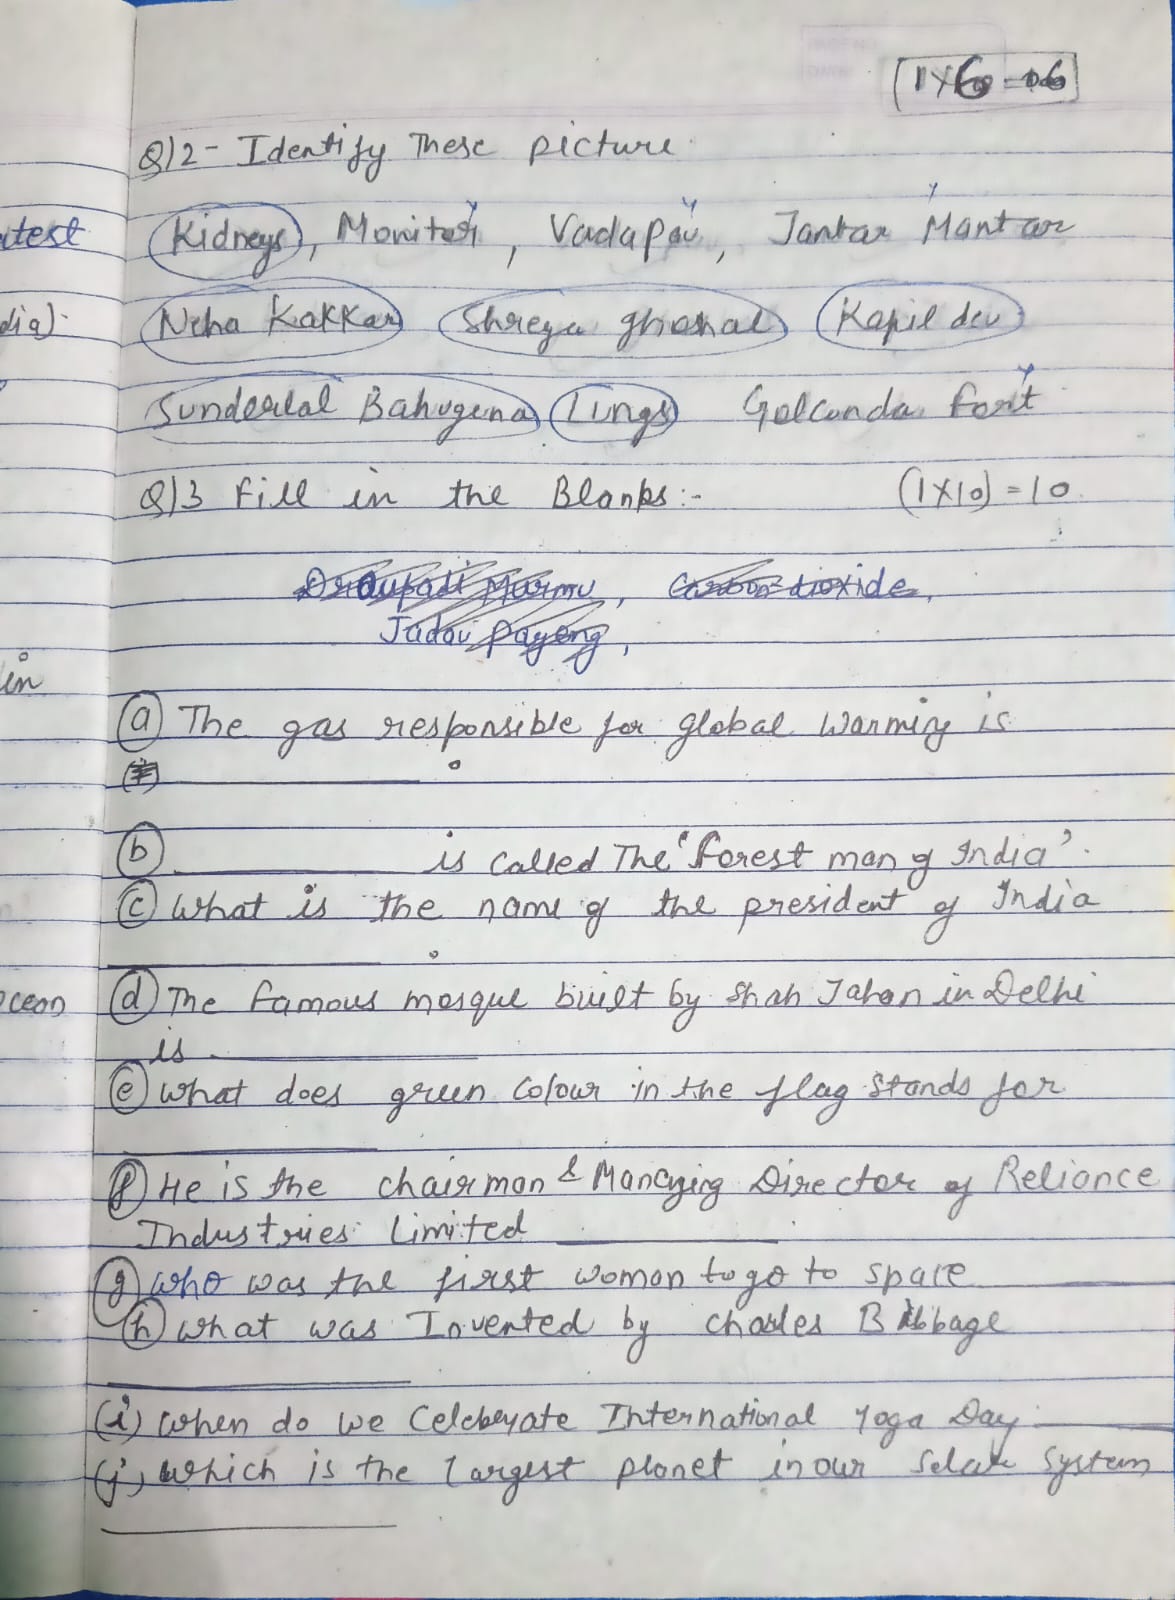 (1×6=06)
Q12- Identify These picture
Kidneys, Monitor, Vadapav, Jantar Mantar
Neha Kakkar Shreya ghoshal Kapil dev
Sunderlal Bahuguna Lungs Golconda fort
Q13 Fill in the Blanks:- (1×10)=10
Draupadi Murmu, Carbon dioxide,
Jadav Payeng,
(a) The gas responsible for global warming is
(b) is called The 'forest man of India'.
(c) What is the name of the president of India
(d) The famous mosque built by Shah Jahan in Delhi
is
(e) What does green colour in the flag stands for
(f) He is the chairman & Managing Director of Reliance
Industries Limited
(g) who was the first woman to go to space
(h) what was Invented by charles Babbage
(i) When do we Celebrate International Yoga Day
(j) Which is the largest planet in our Solar System
utest
dia)
in
ocean